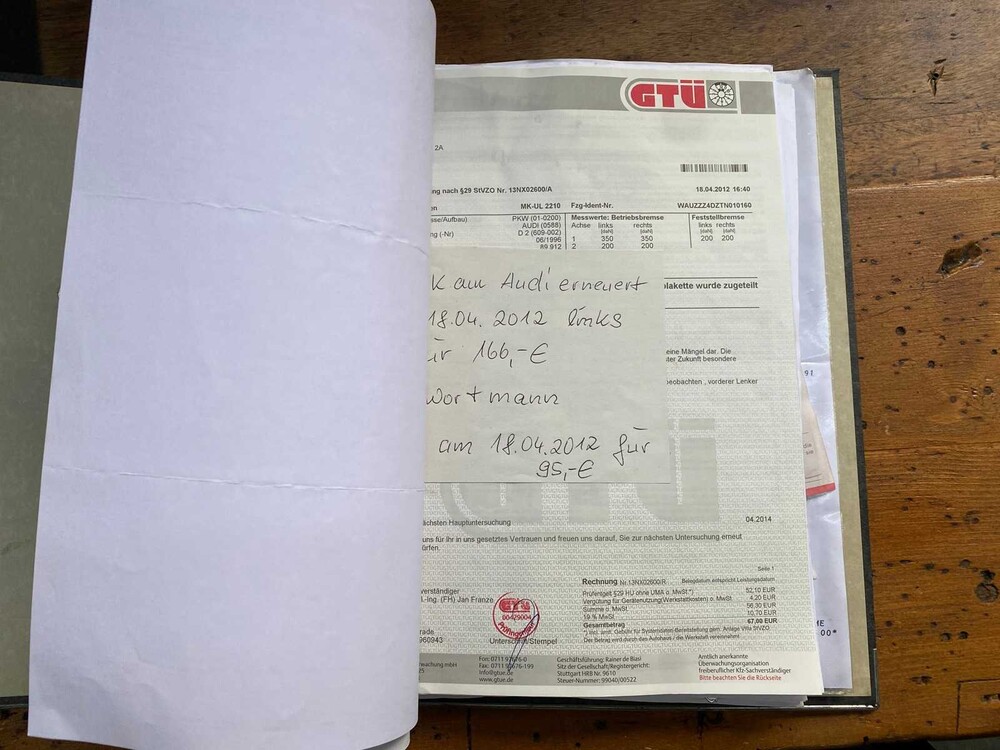 GTÜ
2A
ng nach §29 StVZO Nr. 13NX02600/A
18.04.2012 16:40
en MK-UL 2210 Fzg-Ident-Nr. WAUZZZ4DZTN010160
sse/Aufbau) PKW (01-0200) Messwerte: Betriebsbremse Feststellbremse
AUDI (0588) Achse links rechts links rechts
ng (-Nr) D 2 (609-002) [daN] [daN] [daN] [daN]
06/1996 1 350 350 200 200
89 912 2 200 200
k am Audi erneuert
18.04. 2012 links
ür 166,-€
Wortmann
am 18.04.2012 für
95,-€
plakette wurde zugeteilt
eine Mängel dar. Die
ter Zukunft besondere
beobachten , vorderer Lenker
91
GTÜ
ächsten Hauptuntersuchung 04.2014
uns für Ihr in uns gesetztes Vertrauen und freuen uns darauf, Sie zur nächsten Untersuchung erneut
ürfen.
Seite 1
Rechnung Nr. 13NX02600/R Belegdatum entspricht Leistungsdatum
Prüfentgelt §29 HU ohne UMA o. MwSt.*) 52,10 EUR
Vergütung für Gerätenutzung(Werkstattkosten) o. MwSt. 4,20 EUR
Summe o. MwSt. 56,30 EUR
19 % MwSt. 10,70 EUR
Gesamtbetrag 67,00 EUR
*) incl. amtl. Gebühr für Systemdaten-Bereitstellung gem. Anlage VIIIa StVZO
Der Betrag wird durch das Autohaus / die Werkstatt vereinnahmt
verständiger
l.-Ing. (FH) Jan Franze
GTÜ
00429004
Prüfingenieur
rade
960943
Unterschrift/Stempel
rwachung mbH
25
Fon: 0711 97676-0
Fax: 0711 97676-199
info@gtue.de
www.gtue.de
Geschäftsführung: Rainer de Biasi
Sitz der Gesellschaft/Registergericht:
Stuttgart HRB Nr. 9610
Steuer-Nummer: 99040/00522
Amtlich anerkannte
Überwachungsorganisation
freiberuflicher Kfz-Sachverständiger
Bitte beachten Sie die Rückseite
ME
00*